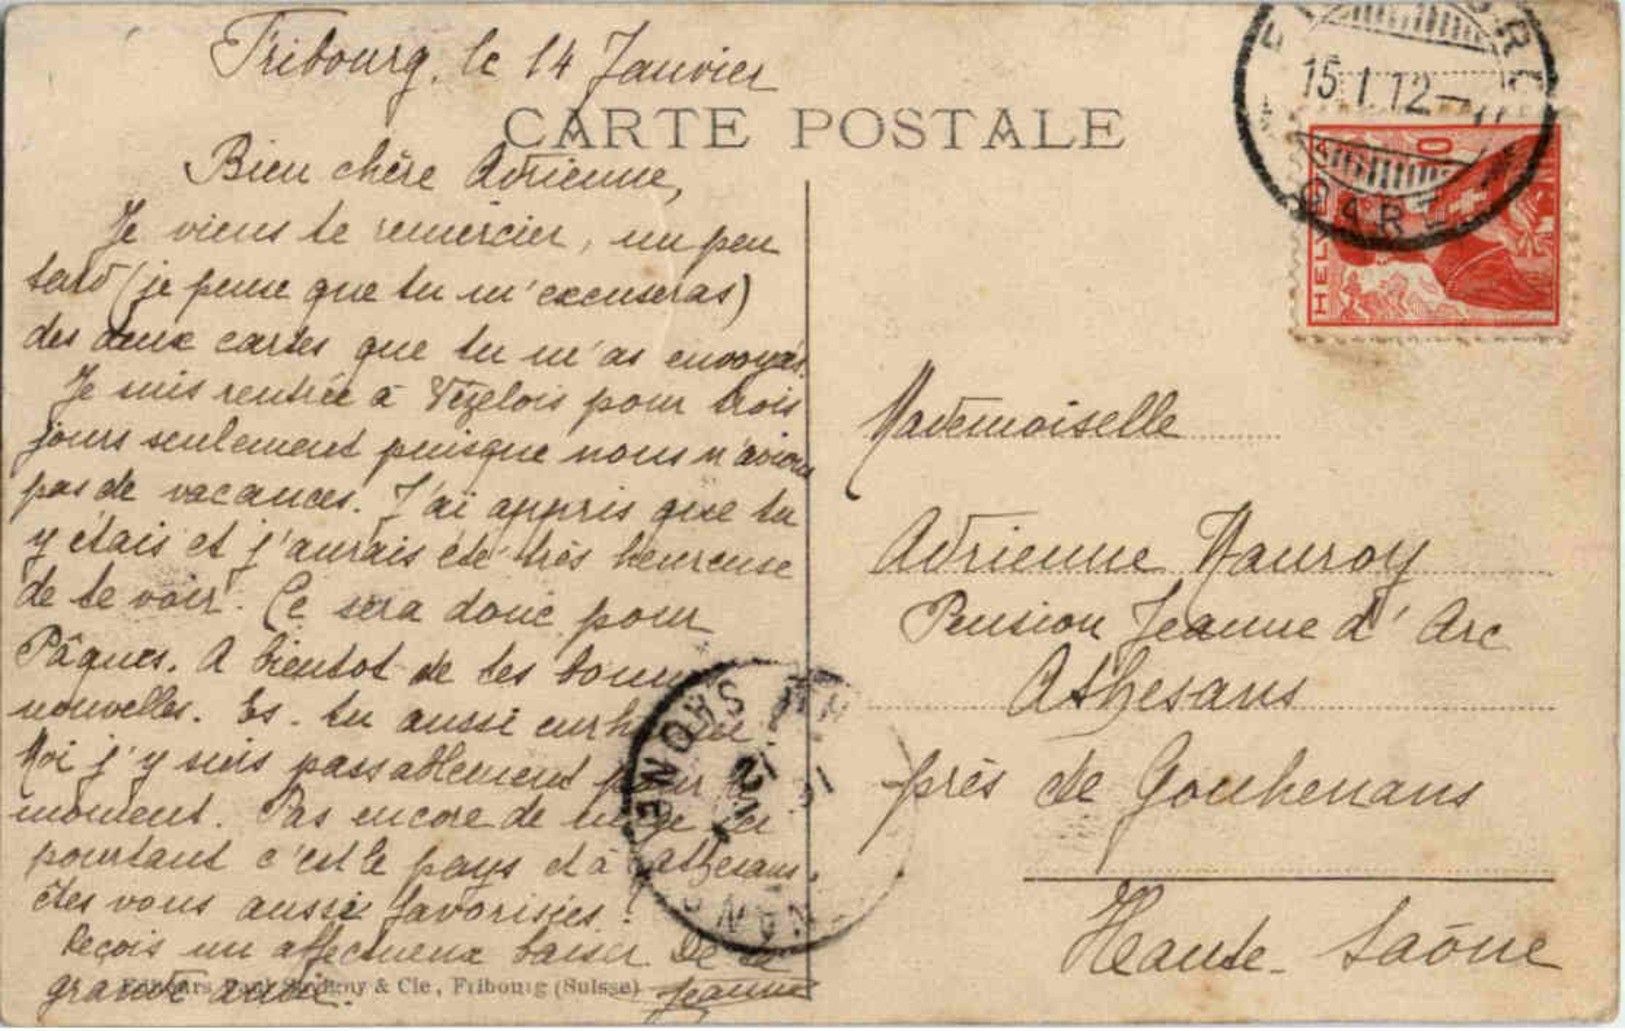 Fribourg, le 14 Janvier
CARTE POSTALE
Bien chère Adrienne,
Je viens te remercier, un peu
tard (je pense que tu m'excuseras)
des deux cartes que tu m'as envoyées.
Je suis rentrée à Vézelois pour trois
jours seulement puisque nous n'avions
pas de vacances. J'ai appris que tu
y étais et j'aurais été très heureuse
de te voir. Ce sera donc pour
Pâques. A bientot de tes bonnes
nouvelles. Es-tu aussi
Moi j'y suis passablement pour le
moment. Pas encore de neige ici
pourtant c'est le pays et à Athesans,
êtes vous aussi favorisées?
Reçois un affectueux baiser De ta
grande amie. Jeanne
Editeurs Paul Savigny & Cie, Fribourg (Suisse)
15.I.12
GARE
HELV
Mademoiselle
Adrienne Mauroy
Pension Jeanne d'Arc
Athesans
près de Gouhenans
Haute-Saône
SAONE